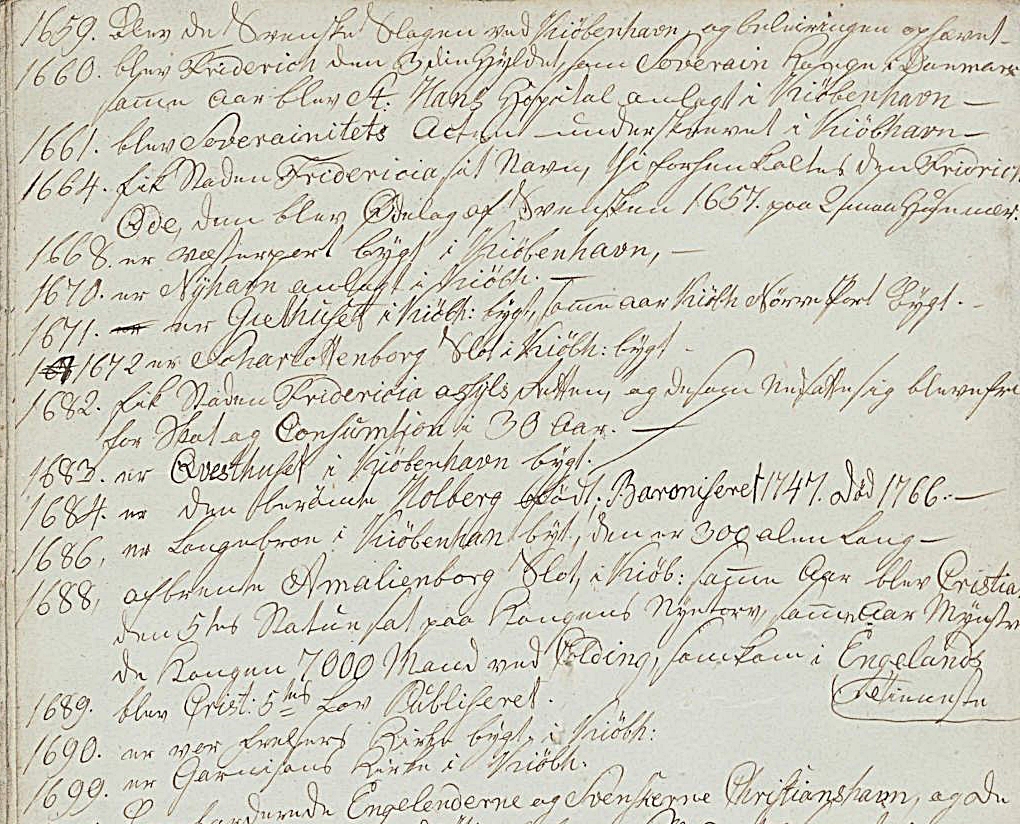 1659. Blev de Svenske Slagen ved Kiöbenhavn, og beleiringen ophævet –
1660. blev Friderich den 3die Hyldet, som Soverain Konge i Danmark
samme Aar blev St. Hans Hospital anlagt i Kiöbenhavn –
1661. blev Soverainitets Acten underskrevet i Kiöbhavn –
1664. fik Staden Fridericia sit Navn, thi forhen kaltes den Fridrichs
Ode, den blev Ødelag af Svensken 1657. paa
1668. er Vesterport bÿgt i Kiöbenhavn, –
1670. er Nÿhavn anlagt i Kiöbh. –
1671. er Giethuset i Kiöbh: bÿgt, samme aar Kiöbh Nörre Port Bÿgt. –
1672 er Scharlottenborg Slot i Kiöbh: bÿgt –
1682. fik Staden Fridericia asÿls Retten, og de som Nedsatte sig bleve fri
for Skat og Consumtion i 30 Aar. –
1683. er Qvesthuset i Kiöbenhavn bÿgt.
1684. er den berömte Holberg Födt; Baroniseret 1747. Död 1766. –
1686, er Langebroe i Kiöbenhavn bÿt, den er 300 alen Lang –
1688, afbrente Amalienborg Slot, i Kiöb: samme Aar blev Cristian
den 5tes Statue sat paa Kongens Nÿetorv, samme Aar Mönstre
de Kongen 7000 Mand ved Kolding, som kom i Engelands
Tienneste
1689. blev Crist: 5tes Lov Publiseret.
1690. er vor Frelsers Kirke bÿgt, i Kiöbh:
1699. er Garnisons Kirke i Kiöbh.
Engelenderne og Svenskerne Christianshavn, og de